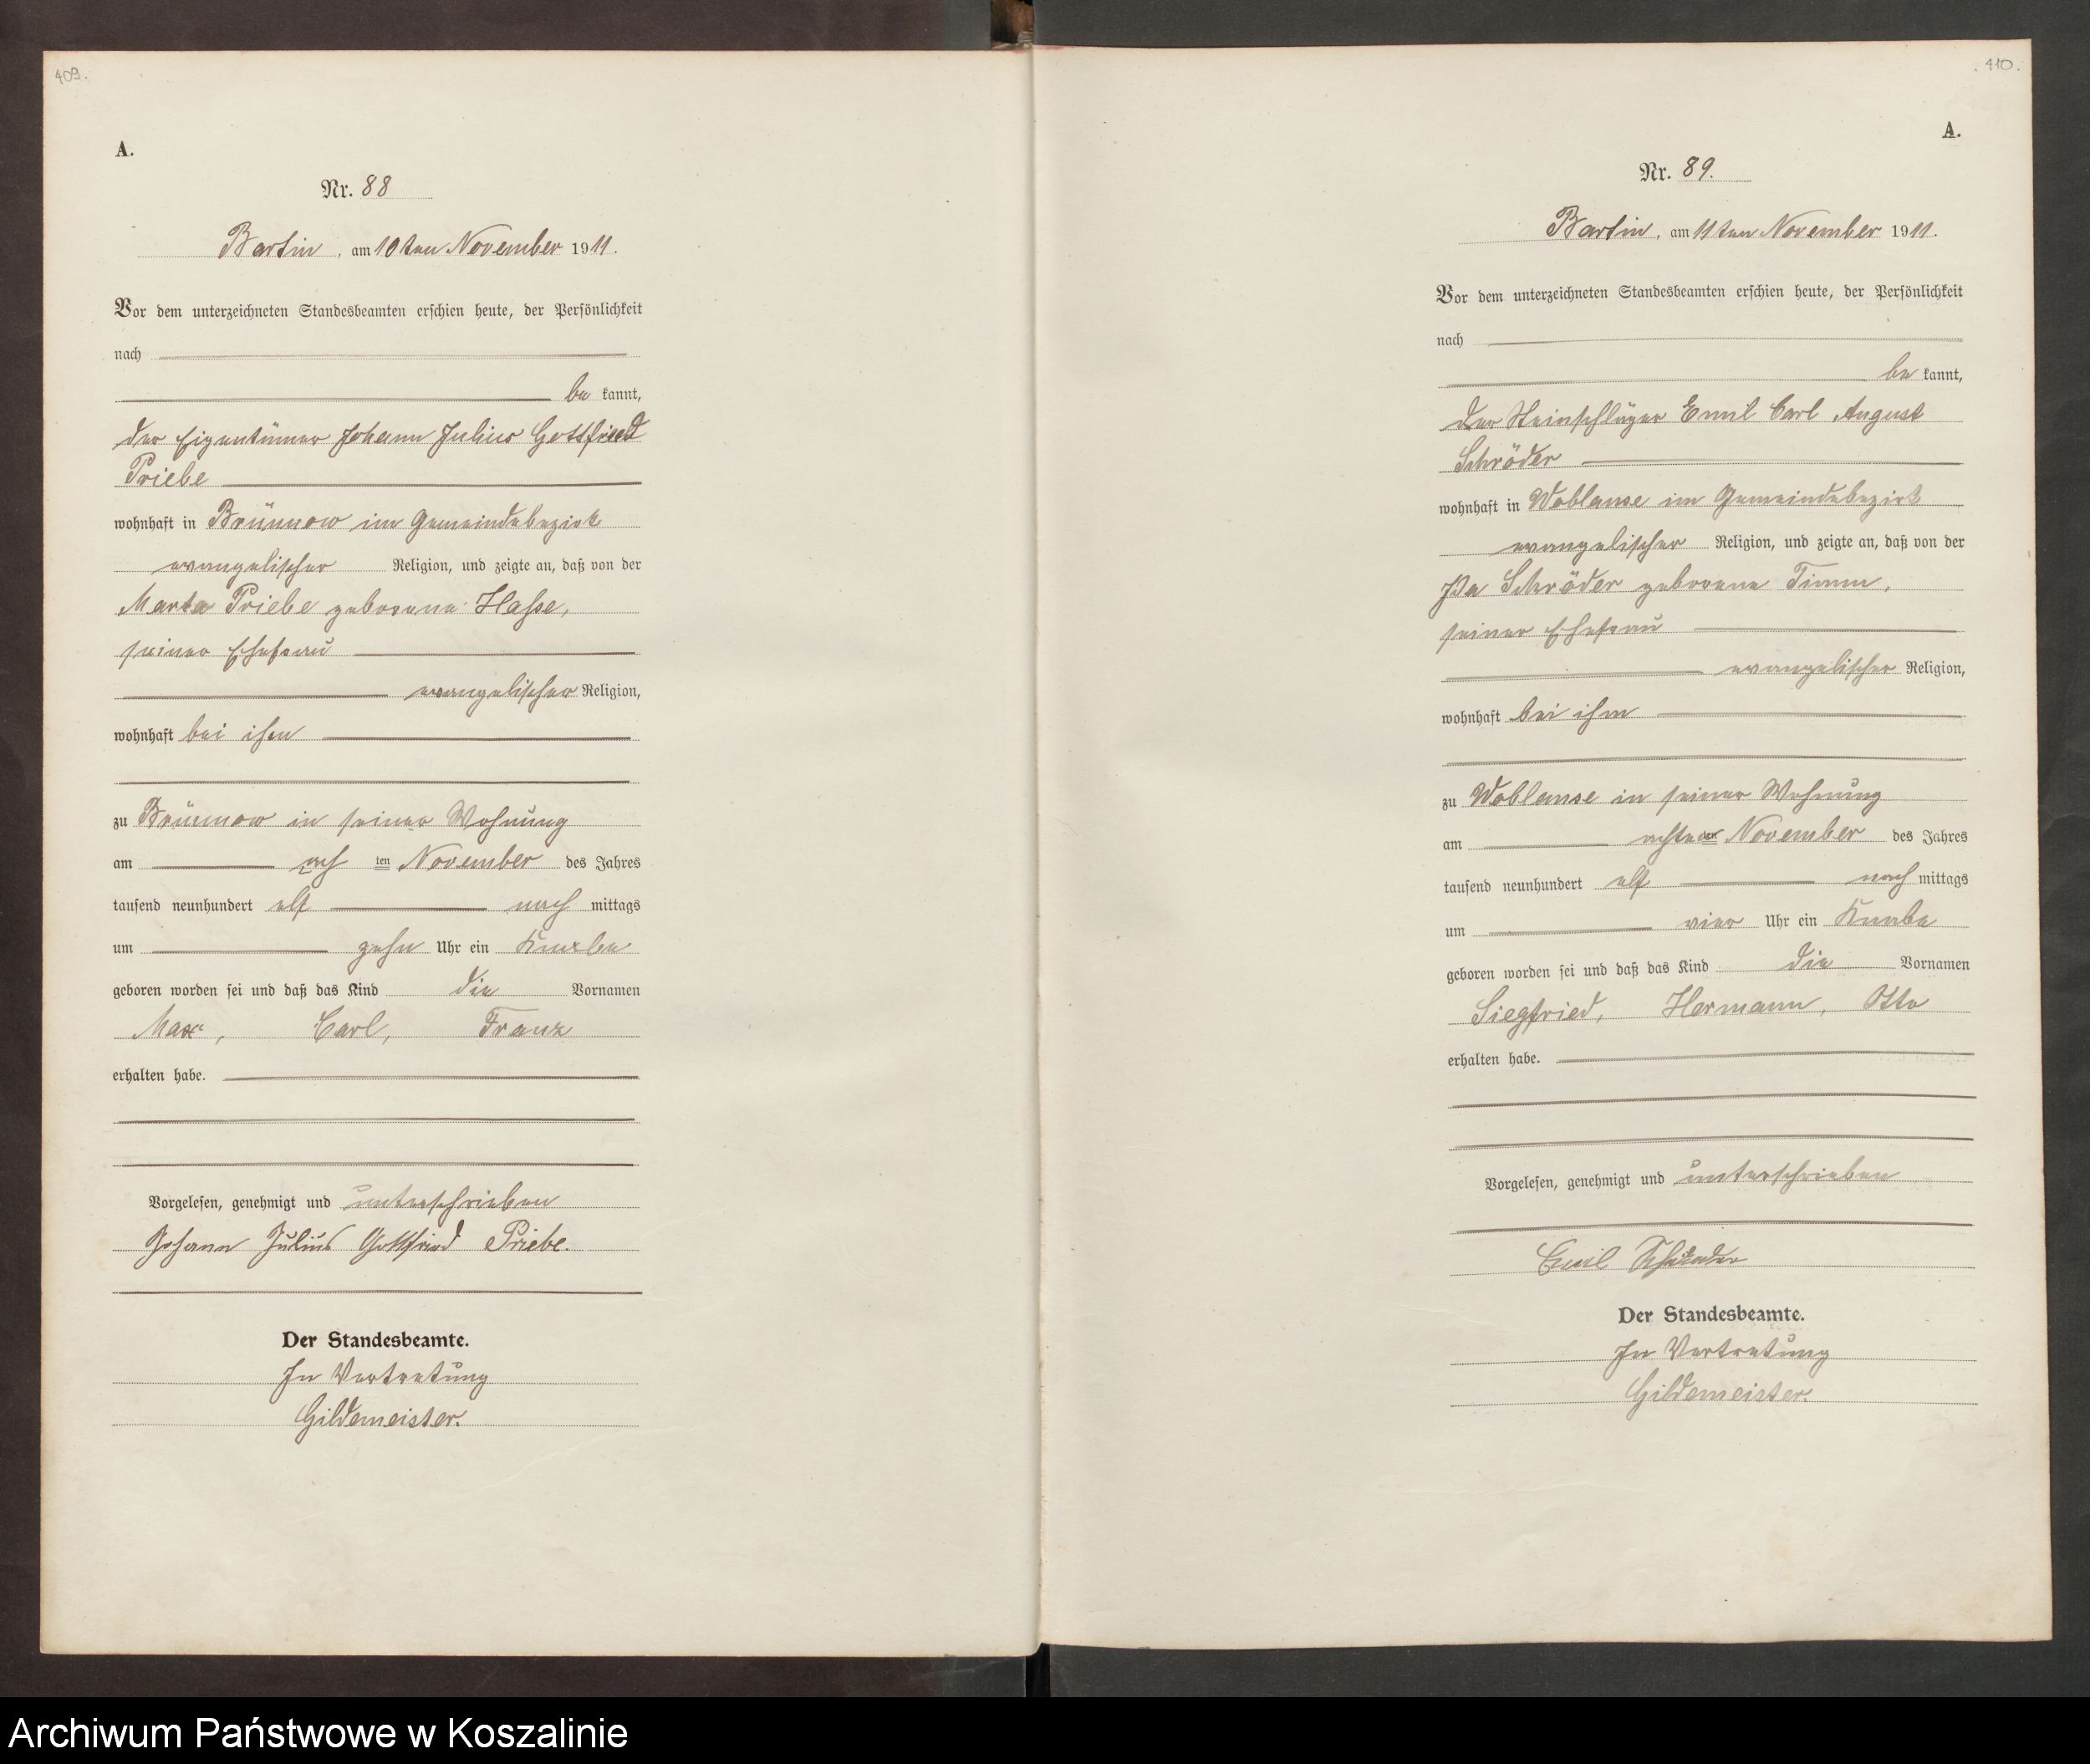 409.
A.
Nr. 88
Bartin, am 10ten November 1911.
Vor dem unterzeichneten Standesbeamten erschien heute, der Persönlichkeit
nach
be kannt,
der Eigentümer Johann Julius Gottfried
Priebe
wohnhaft in Brünnow im Gemeindebezirk
evangelischer Religion, und zeigte an, daß von der
Marta Priebe geborene Hasse,
seiner Ehefrau
evangelischer Religion,
wohnhaft bei ihm
zu Brünnow in seiner Wohnung
am ach ten November des Jahres
tausend neunhundert elf nach mittags
um zehn Uhr ein Knabe
geboren worden sei und daß das Kind die Vornamen
Max, Carl, Franz
erhalten habe.
Vorgelesen, genehmigt und unterschrieben
Johann Julius Gottfried Priebe.
Der Standesbeamte.
In Vertretung
Gildemeister.
410.
A.
Nr. 89.
Bartin, am 11ten November 1911.
Vor dem unterzeichneten Standesbeamten erschien heute, der Persönlichkeit
nach
be kannt,
der Steinschläger Emil Carl August
Schröder
wohnhaft in Woblanse im Gemeindebezirk
evangelischer Religion, und zeigte an, daß von der
Ida Schröder geborene Timm,
seiner Ehefrau
evangelischer Religion,
wohnhaft bei ihm
zu Woblanse in seiner Wohnung
am achten November des Jahres
tausend neunhundert elf nach mittags
um vier Uhr ein Knabe
geboren worden sei und daß das Kind die Vornamen
Siegfried, Hermann, Otto
erhalten habe.
Vorgelesen, genehmigt und unterschrieben
Emil Schröder
Der Standesbeamte.
In Vertretung
Gildemeister.
Archiwum Państwowe w Koszalinie